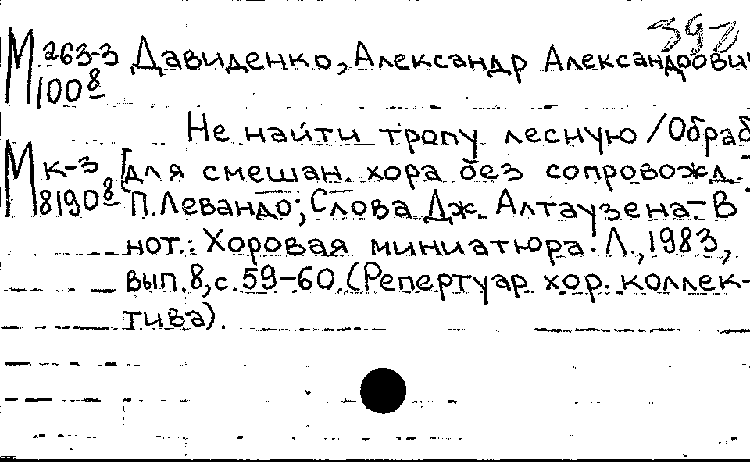 392
М 263-3 Давиденко, Александр Александрович
1008
Не найти тропу лесную / Обраб
М к-3 [для смешан. хора без сопровожд.
81908 П. Левандо; Слова Дж. Алтаузена.- В
нот.: Хоровая миниатюра. Л., 1983,
вып. 8, с. 59-60. (Репертуар хор. коллек-
тива).